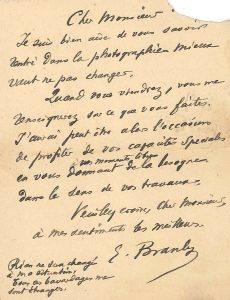 Cher Monsieur
Je suis bien aise de vous savoir
rentré dans la photographie mieux
vaut ne pas changer.
Quand vous viendrez, vous me
renseignerez sur ce que vous faites.
J'aurai peut être alors l'occasion
de profiter de vos capacités spéciales
vos moments libres
en vous donnant de la besogne
dans le sens de vos travaux.
Veuillez croire, cher Monsieur,
à mes sentiments les meilleurs.
E. Branly
Rien ne sera changé
à ma situation,
tous ces bavardages me
sont étrangers.